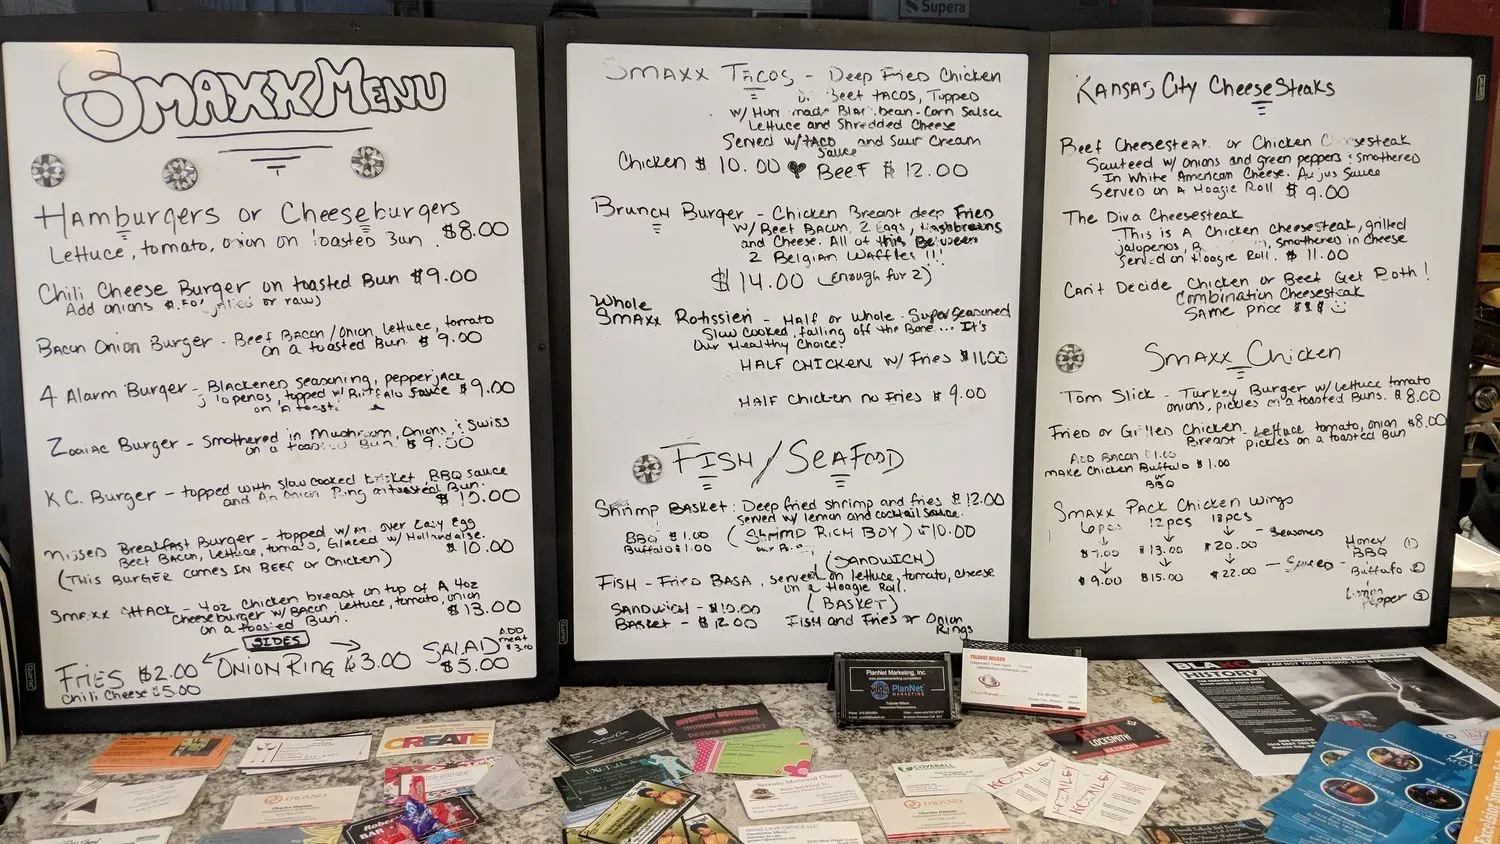 Supera
SMAXX MENU
Hamburgers or Cheeseburgers
Lettuce, tomato, onion on Toasted Bun. $8.00
Chili Cheese Burger on toasted Bun $9.00
Add onions (grilled or raw)
Bacon Onion Burger - Beef Bacon/Onion, lettuce, tomato
on a toasted Bun. $9.00
4 Alarm Burger - Blackened seasoning, pepperjack
topped w/ Buffalo sauce $9.00
on a toast
Zodiac Burger - Smothered in Mushroom, Onions, & Swiss
on a toasted Bun $9.50
K.C. Burger - topped with slow cooked brisket, BBQ sauce
and An Onion Ring on toasted Bun.
$10.00
Missed Breakfast Burger - topped w/ over Easy Egg
Beef Bacon, Lettuce, tomato, Glazed w/ Hollandaise.
$10.00
(THIS BURGER COMES IN BEEF or Chicken)
Smaxx Attack - 4oz Chicken breast on top of A 4oz
Cheeseburger w/ Bacon, lettuce, tomato, onion
on a toasted Bun. $13.00
SIDES
Fries $2.00 Onion Ring $3.00 SALAD $5.00
ADD meat $3.00
Chili Cheese $5.00
SMAXX TACOS - Deep Fried Chicken
Beef TACOS, Topped
w/ made Black bean-Corn Salsa
Lettuce and Shredded Cheese
Served w/ TACO Sauce and Sour Cream
Chicken $10.00 Beef $12.00
Brunch Burger - Chicken Breast deep Fried
w/ Beef Bacon, 2 Eggs, Hashbrowns
and Cheese. All of this Between
2 Belgian Waffles!!
$14.00 (enough for 2)
Whole
SMAXX Rotissieri - Half or Whole. Super Seasoned
Slow Cooked, falling off the Bone... It's
Our Healthy Choice!
HALF CHICKEN w/ Fries $11.00
HALF Chicken no Fries $9.00
FISH/SEAFOOD
Shrimp Basket: Deep fried shrimp and fries $12.00
served w/ lemon and cocktail sauce.
BBQ $1.00 (SHRIMP RICH BOY) $10.00
Buffalo $1.00
(SANDWICH)
FISH - Fried BASA, served on lettuce, tomato, cheese
on a Hoagie Roll.
SANDWICH - $10.00 (BASKET)
BASKET - $12.00 FISH and Fries or Onion
Rings
KANSAS City CheeseSteaks
Beef Cheesesteak or Chicken Cheesesteak
Sauteed w/ onions and green peppers; smothered
In White American Cheese. Au jus Sauce
Served on A Hoagie Roll $9.00
The Diva Cheesesteak
This is A Chicken cheesesteak, grilled
jalapenos, smothered in cheese
Served on Hoagie Roll. $11.00
Can't Decide Chicken or Beef Get Both!
Combination Cheesesteak
SAME price $$$
Smaxx Chicken
Tom Slick - Turkey Burger w/ lettuce tomato
onions, pickles on a toasted Buns. $8.00
Fried or Grilled Chicken Breast - Lettuce, tomato, onion $8.00
pickles on a toasted Bun
ADD Bacon $1.00
MAKE Chicken Buffalo $1.00
or
BBQ
Smaxx Pack Chicken Wings
6pcs 12pcs 18pcs
$7.00 $13.00 $20.00 - Seasoned
$9.00 $15.00 $22.00 - Sauced -
Honey BBQ
Buffalo
Lemon Pepper
PlanNet Marketing, Inc.
PlanNet
MARKETING
Yolanda Wilson
YOLANDA WILSON
BLAKC
HISTORY
I AM NOT YOUR NEGRO
CREATE
LOCKSMITH
COVERALL
Serenity Memorial Chapel
MIMS LAW OFFICE LLC
ORGANO
ORGANO
BOUTIQUE